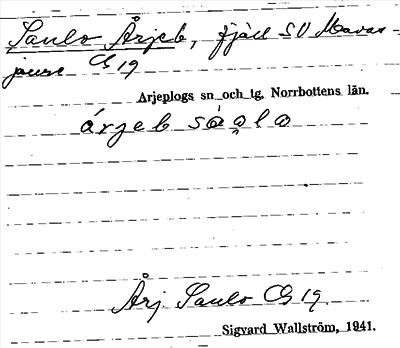 Saulo Årjeb, fjäll SV Mavas-
jaure Gb 19
Arjeplogs sn och tg, Norrbottens län.
árjeb sá̀u̯lo
Årj. Saulo Gb 19.
Sigvard Wallström, 1941.